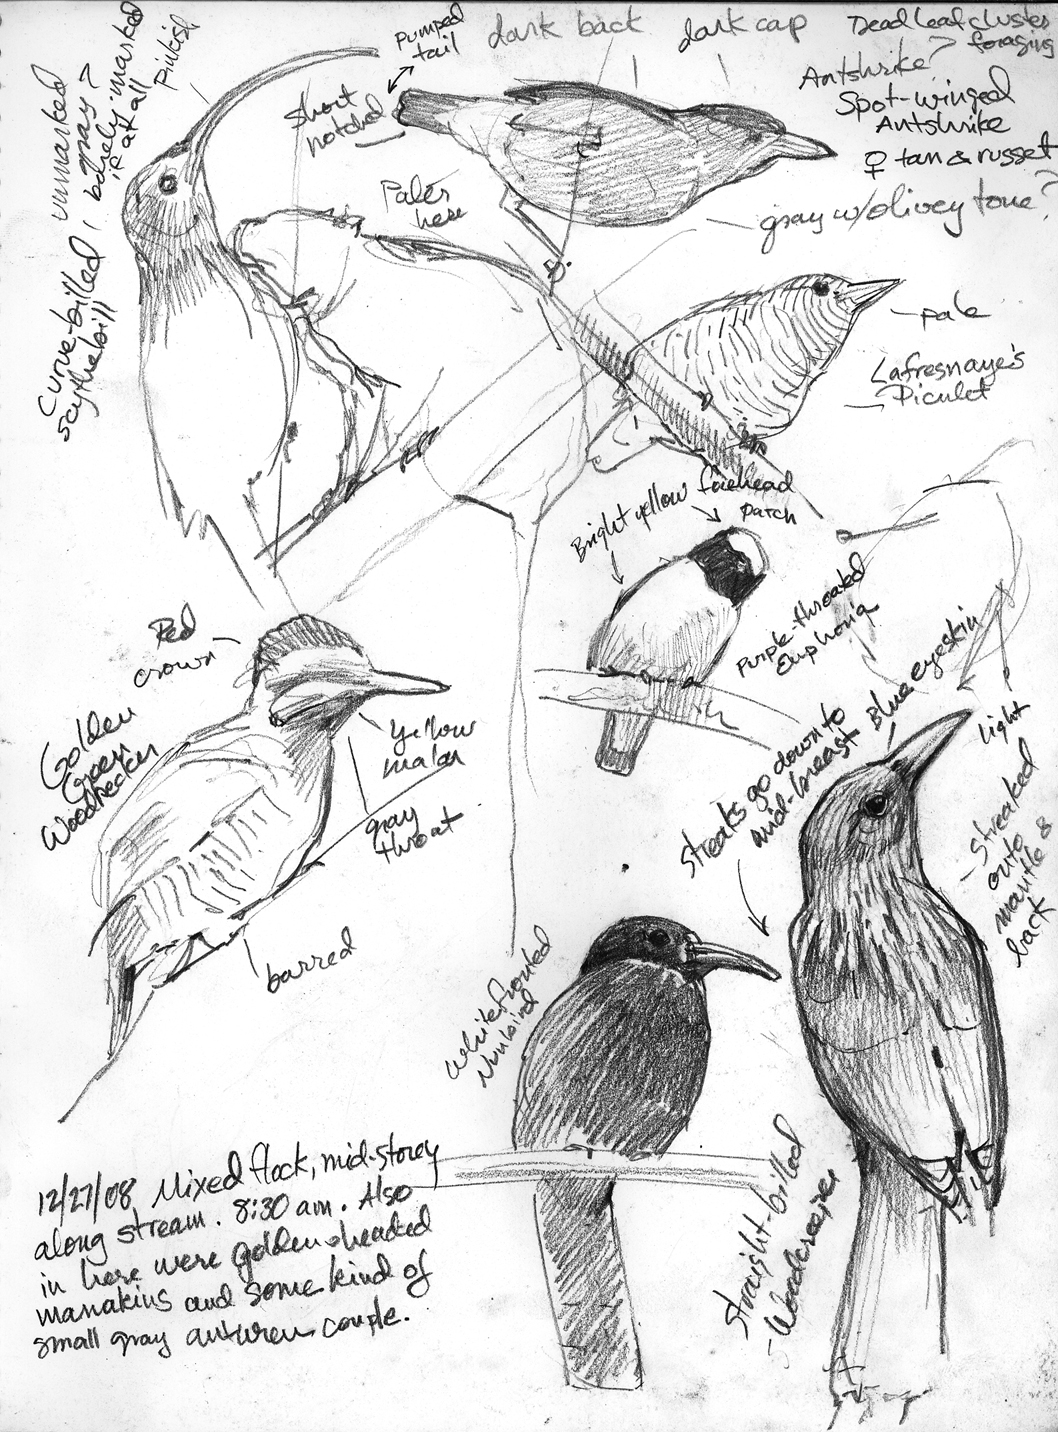 Pumped
tail
dark back
dark cap
Dead leaf cluster
foraging
Antshrike?
Spot-winged
Antshrike
♀ tan & russet
gray w/olivey tone?
short
notched
Paler
here
Pinkish
unmarked
gray?
barely marked
if at all
Curve-billed
scythebill
pale
Lafresnaye's
Piculet
Bright yellow forehead
patch
Purple-throated
Euphonia
Red
crown
Golden
Green
Woodpecker
yellow
malar
gray
throat
barred
Streaks go down to
mid-breast
Blue eyeskin
light
Streaked
onto
mantle &
back
White fronted
Nunbird
Straight-billed
Woodcreeper
12/27/08 Mixed flock, mid-storey
along stream. 8:30 am. Also
in here were golden-headed
manakins and some kind of
small gray antwren couple.